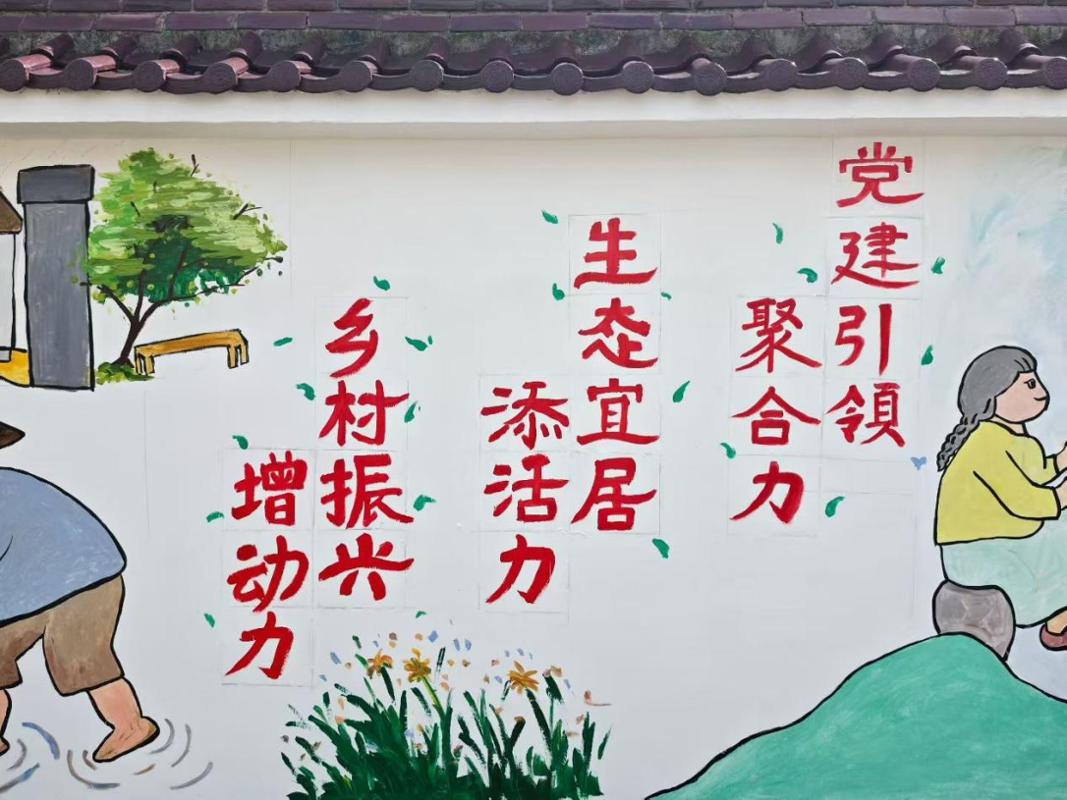 党建引領
聚合力
生态宜居
添活力
乡村振兴
增动力